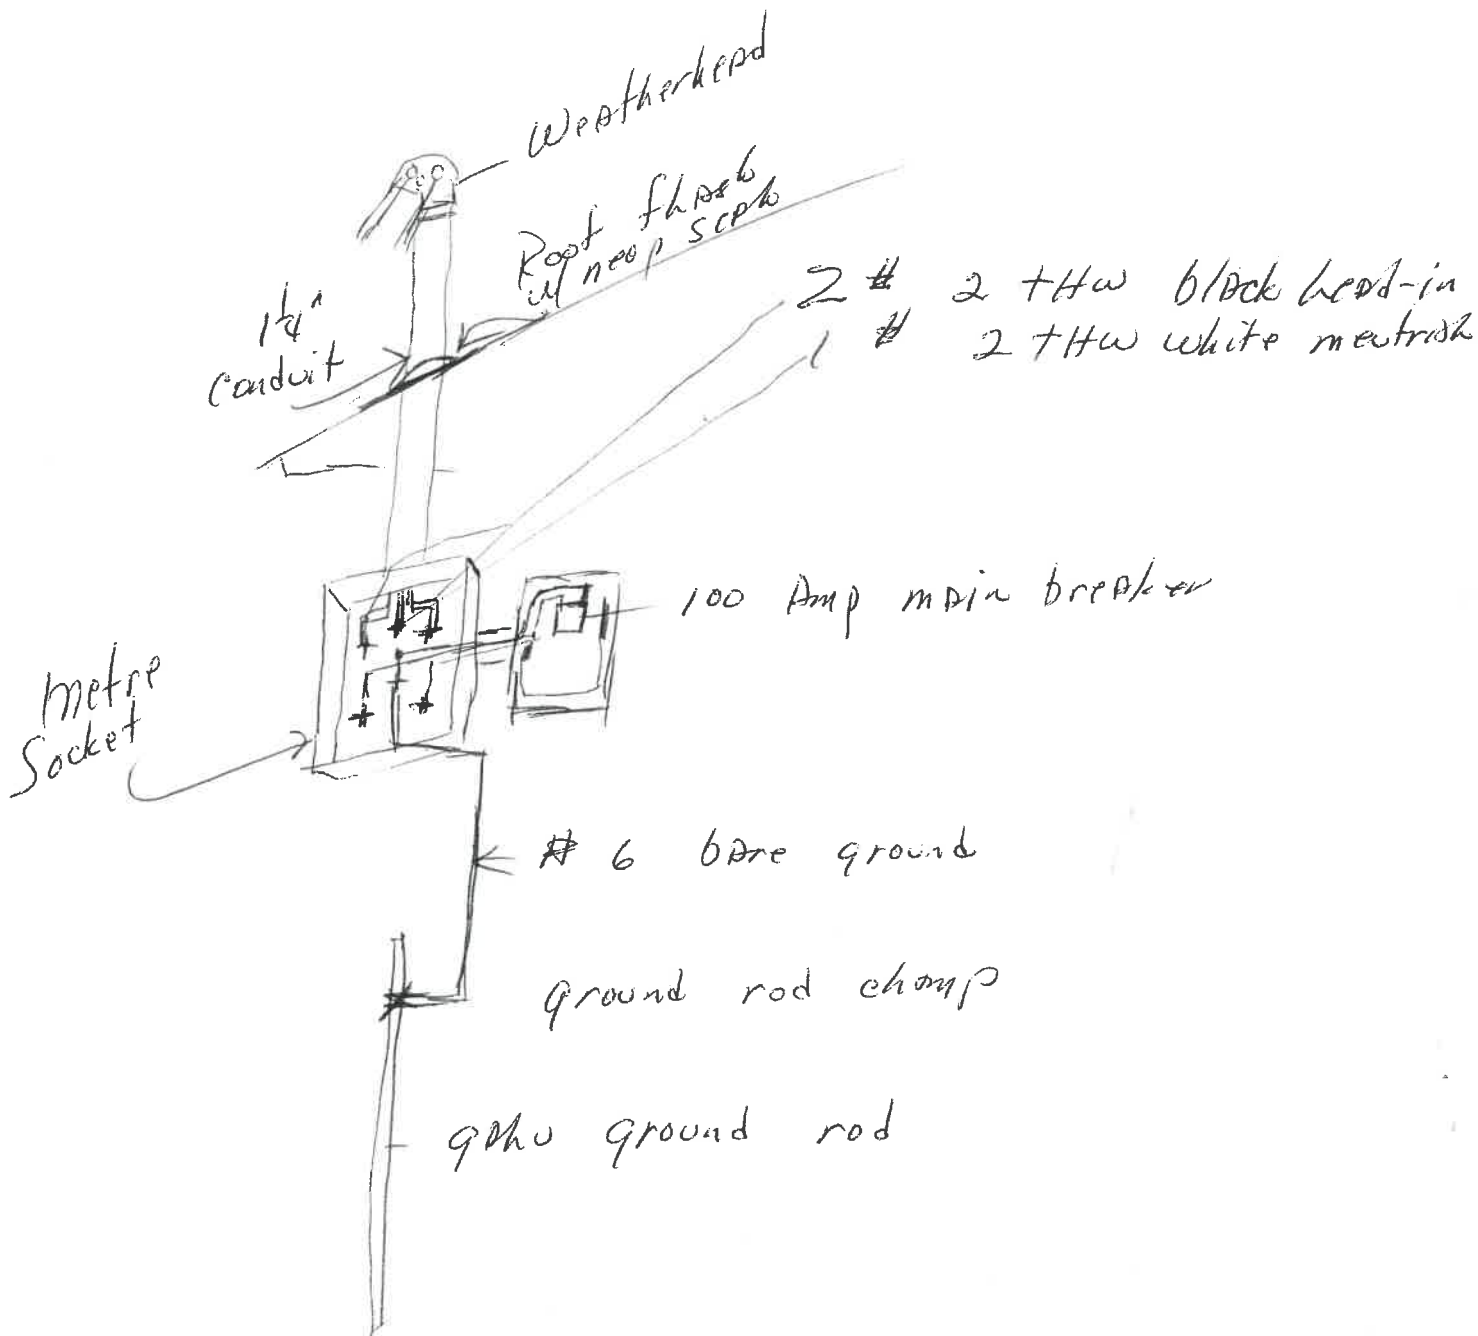 Weatherhead
Roof flash
w/ neop seal
1 1/4"
Conduit
2 # 2 THW black lead-in
1 # 2 THW white neutral
100 Amp main breaker
Metre
Socket
# 6 bare ground
ground rod clamp
galv ground rod